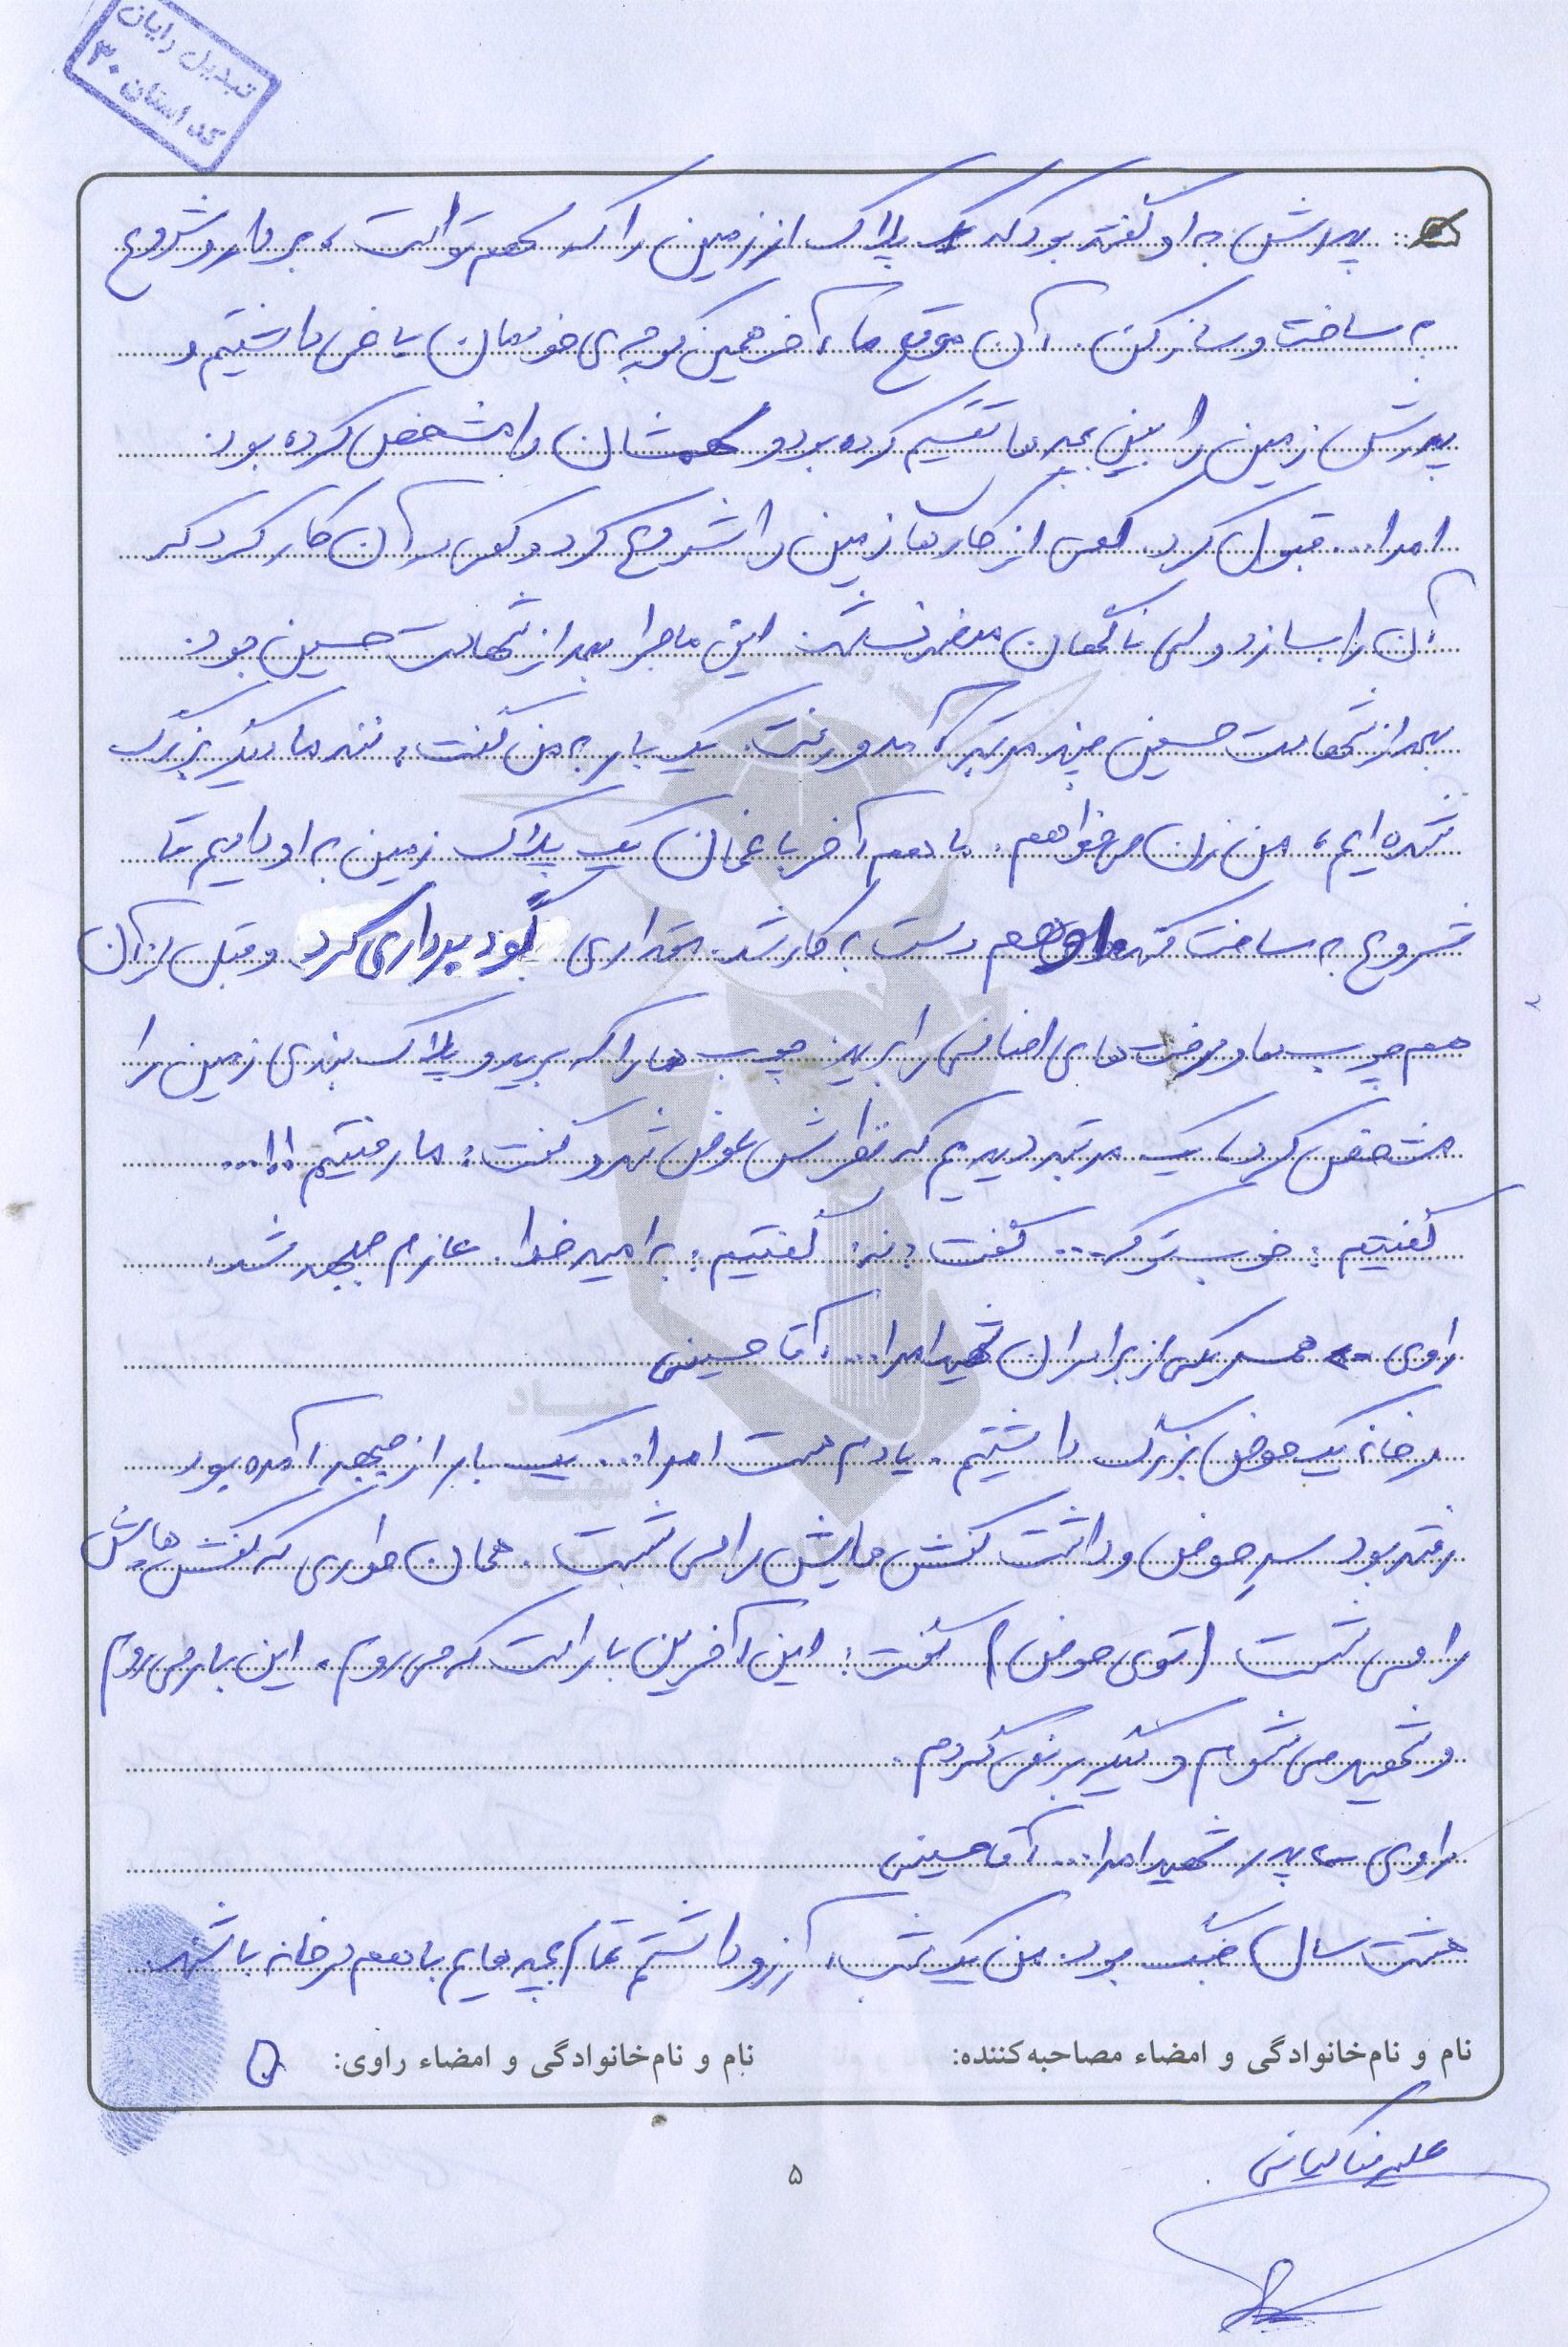 تبدیل رایان
کد استان ۳۰
پدرش به او گفته بود که یک پلاک از زمین را که سهم تو است، بردار و شروع
به ساخت و ساز کن. آن موقع ما آخر همین کوچه‌ی خودمان باغی داشتیم و
پدرش زمین را بین بچه ها تقسیم کرده بود و سهمشان را مشخص کرده بود.
امدا... قبول کرد. کمی از کارهای زمین را شروع کرد و کمی در آن کار کرد که
آن را بسازد ولی ناگهان منصرف شد. این ماجرا بعد از شهادت حسین بود.
بعد از شهادت حسین چند مرتبه آمد و رفت. یک بار به من گفت: ننه ما دیگر بزرگ
شده ایم، من زن می خواهم. ما هم آخر باغمان یک پلاک زمین به او دادیم تا
شروع به ساخت کند. او هم دست به کار شد. مقداری گود برداری کرد و قبل از آن
هم چوب ها و درخت های اضافی را برید. چوب ها را که برید و پلاک بندی زمین را
مشخص کرد، یک مرتبه دیدیم که نظرش عوض شد و گفت: ما رفتیم!!...
گفتیم: خوب تو که... گفت: نه! گفتیم: به امید خدا. عازم جبهه شد.
راوی ← همسر یکی از برادران شهید امدا... آقا حسینی
در خانه یک حوض بزرگ داشتیم. یادم هست امدا... یک بار از جبهه آمده بود
رفته بود سرِ حوض و داشت کفش هایش را می شست. همان طوری که کفش هایش
را می شست (توی حوض) گفت: این آخرین بار است که می روم. این بار می روم
و شهید می شوم و دیگر بر نمی گردم.
راوی ← پدر شهید امدا... آقا حسینی
هشت سال جنگ بود. من یک شب، آرزو داشتم تمام بچه هایم با هم در خانه باشند.
نام و نام‌خانوادگی و امضاء مصاحبه‌کننده:
نام و نام‌خانوادگی و امضاء راوی:
علیرضا کیانی
۵